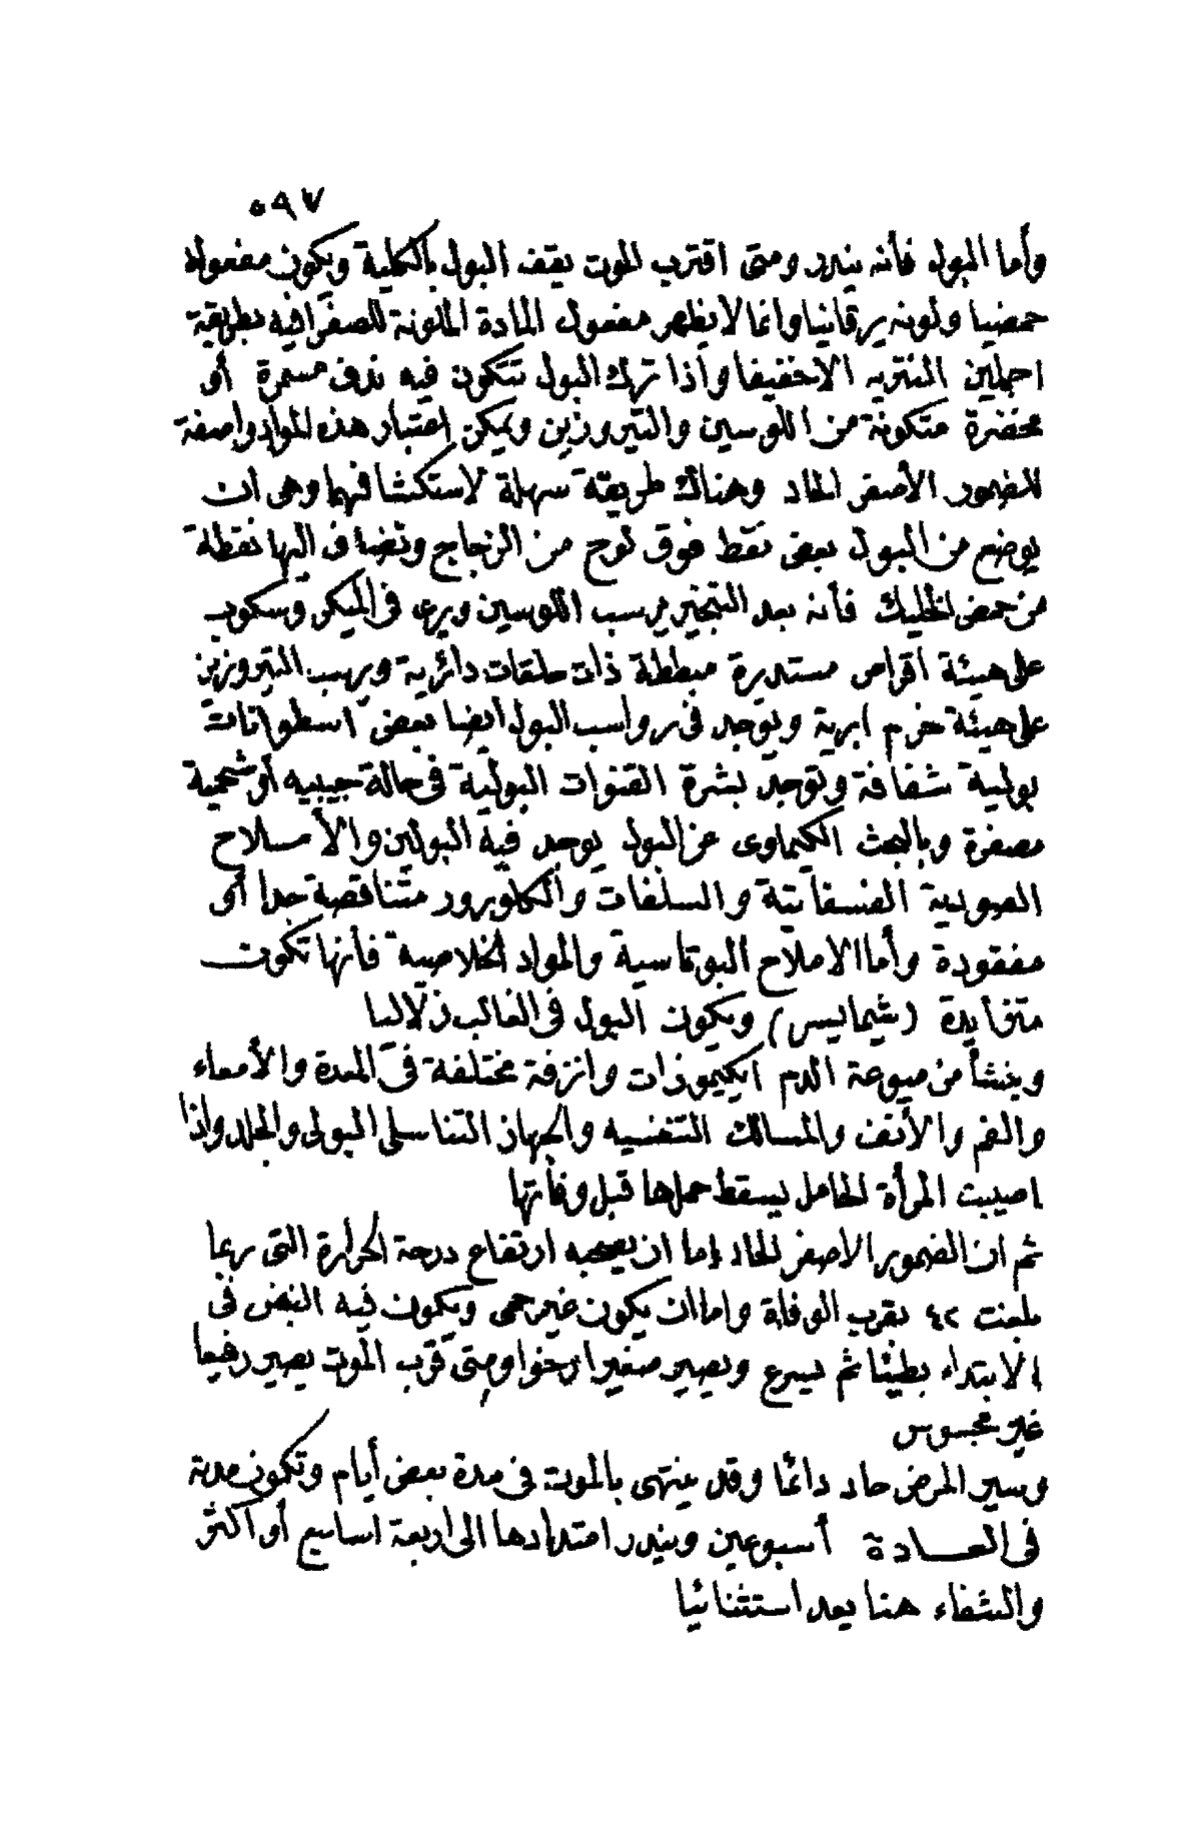 ٥٩٧
وأما البول فأنه يندر ومتى اقترب الموت يقف البول بالكلية ويكون مفعوله
حمضيا ولونه يرقانيا وانما لا يظهر مفعول المادة الملونة للصفرا فيه بطريقة
اجملين النتريه الاخفيفا واذا ترك البول تتكون فيه ندف مسمرة أو
مخضرة متكونة من اللوسين والتيروزين ويمكن اعتبار هذه المواد واصفة
للضمور الأصفر الحاد وهناك طريقة سهلة لاستكشافهما وهى ان
يوضع من البول بعض نقط فوق لوح من الزجاج وتضاف اليها نقطة
من حمض الخليك فأنه بعد التبخير يرسب اللوسين ويرى فى الميكروسكوب
على هيئة أقراص مستديرة مبططة ذات حلقات دائرية ويرسب التيروزين
على هيئة حزم ابرية ويوجد فى رواسب البول أيضا بعض اسطوانات
بولية شفافة وتوجد بشرة القنوات البولية فى حالة حبيبيه أو شحمية
مصفرة وبالبحث الكيماوى عن البول يوجد فيه البولين والأملاح
الصودية الفسفاتية والسلفات والكلورور متناقصة جدا أو
مفقودة وأما الاملاح البوتاسية والمواد الخلاصية فأنها تكون
متزايدة (شيمايس) ويكون البول فى الغالب زلاليا
وينشأ من ميوعة الدم ايكيموزات وانزفة مختلفة فى المعدة والأمعاء
والفم والأنف والمسالك التنفسيه والجهاز التناسلى البولى والجلد واذا
اصيبت المرأة الحامل يسقط حملها قبل وفاتها
ثم ان الضمور الاصفر الحاد إما ان يصحبه ارتفاع درجة الحرارة التى ربما
بلغت ٤٢ بقرب الوفاة واما ان يكون غير حمى ويكون فيه النبض فى
الابتداء بطيئا ثم يسرع ويصير صغيرا رخوا ومتى قرب الموت يصير رفيعا
غير محسوس
وسير المرض حاد دائما وقد ينتهى بالموت فى مدة بعض أيام وتكون مدته
فى العادة أسبوعين ويندر امتدادها الى اربعة اسابيع أو اكثر
والشفاء هنا يعد استثنائيا